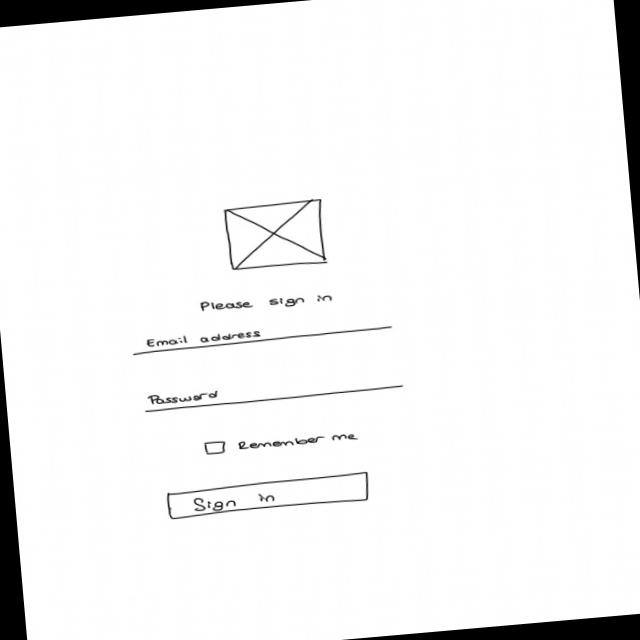 Please sign in
Email address
Password
Remember me
Sign in